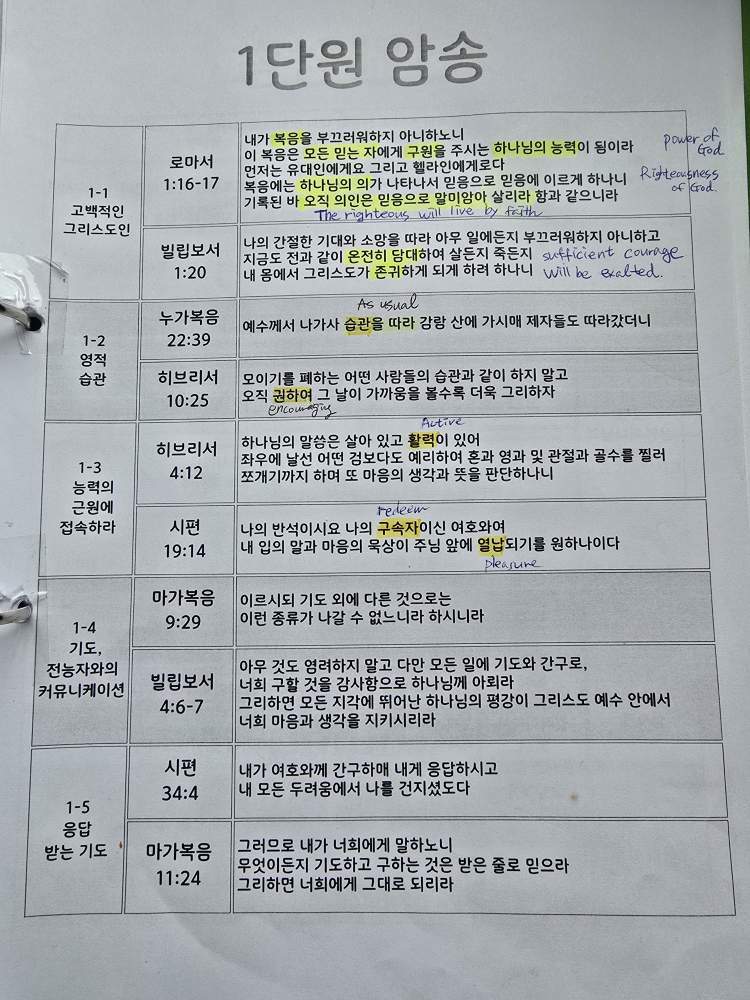 1단원 암송
1-1
고백적인
그리스도인
로마서
1:16-17
내가 복음을 부끄러워하지 아니하노니
이 복음은 모든 믿는 자에게 구원을 주시는 하나님의 능력이 됨이라
power of
God
먼저는 유대인에게요 그리고 헬라인에게로다
복음에는 하나님의 의가 나타나서 믿음으로 믿음에 이르게 하나니
Righteousness
of God.
기록된 바 오직 의인은 믿음으로 말미암아 살리라 함과 같으니라
The righteous will live by faith
빌립보서
1:20
나의 간절한 기대와 소망을 따라 아무 일에든지 부끄러워하지 아니하고
지금도 전과 같이 온전히 담대하여 살든지 죽든지 sufficient courage
내 몸에서 그리스도가 존귀하게 되게 하려 하나니 will be exalted.
1-2
영적
습관
누가복음
22:39
As usual
예수께서 나가사 습관을 따라 감람 산에 가시매 제자들도 따라갔더니
히브리서
10:25
모이기를 폐하는 어떤 사람들의 습관과 같이 하지 말고
오직 권하여 그 날이 가까움을 볼수록 더욱 그리하자
encouraging
1-3
능력의
근원에
접속하라
히브리서
4:12
Active
하나님의 말씀은 살아 있고 활력이 있어
좌우에 날선 어떤 검보다도 예리하여 혼과 영과 및 관절과 골수를 찔러
쪼개기까지 하며 또 마음의 생각과 뜻을 판단하나니
시편
19:14
redeem
나의 반석이시요 나의 구속자이신 여호와여
내 입의 말과 마음의 묵상이 주님 앞에 열납되기를 원하나이다
pleasure
1-4
기도,
전능자와의
커뮤니케이션
마가복음
9:29
이르시되 기도 외에 다른 것으로는
이런 종류가 나갈 수 없느니라 하시니라
빌립보서
4:6-7
아무 것도 염려하지 말고 다만 모든 일에 기도와 간구로,
너희 구할 것을 감사함으로 하나님께 아뢰라
그리하면 모든 지각에 뛰어난 하나님의 평강이 그리스도 예수 안에서
너희 마음과 생각을 지키시리라
1-5
응답
받는 기도
시편
34:4
내가 여호와께 간구하매 내게 응답하시고
내 모든 두려움에서 나를 건지셨도다
마가복음
11:24
그러므로 내가 너희에게 말하노니
무엇이든지 기도하고 구하는 것은 받은 줄로 믿으라
그리하면 너희에게 그대로 되리라